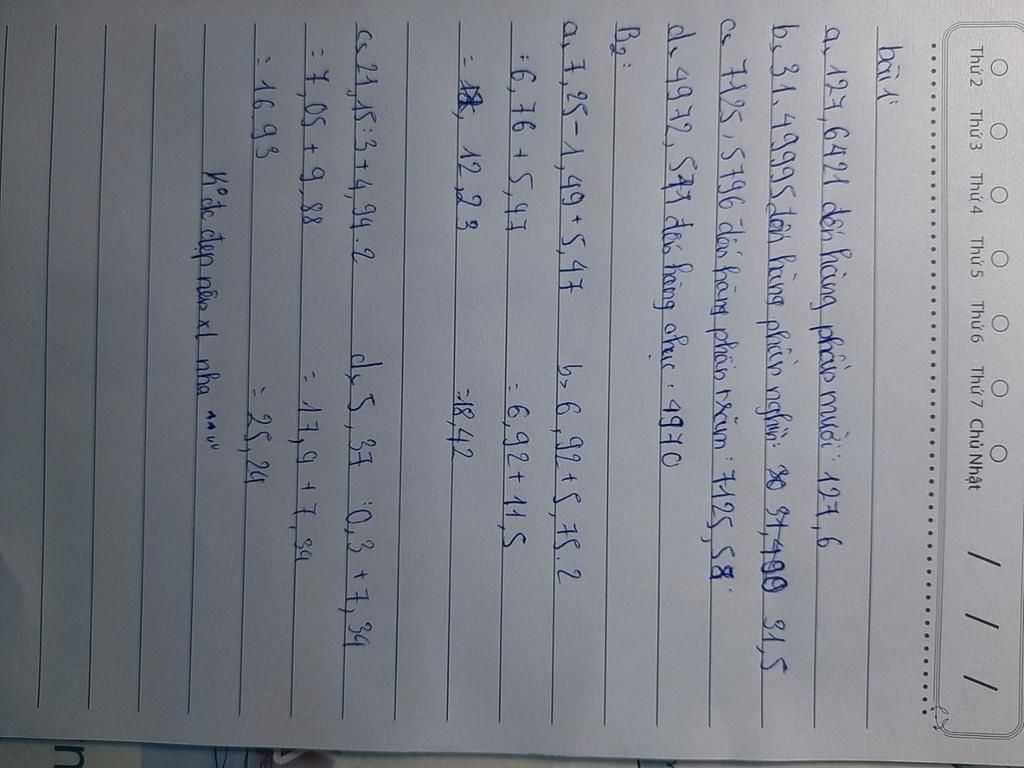 Thứ 2 Thứ 3 Thứ 4 Thứ 5 Thứ 6 Thứ 7 Chủ Nhật / / /
bài 1:
a, 127,6421 đến hàng phần mười: 127,6
b, 31,49995 đến hàng phần nghìn: 31,5
c, 7125,5796 đến hàng phần trăm: 7125,58.
d, 4972,577 đến hàng chục: 4970
B2:
a, 7,25-1,49+5,47 b, 6,92+5,75.2
=6,76+5,47 =6,92+11,5
= 12,23 =18,42
c, 21,15:3+4,94.2 d, 5,37 :0,3+7,34
=7,05+9,88 =17,9+7,34
=16,93 =25,24
K° đc đẹp nên xl nha